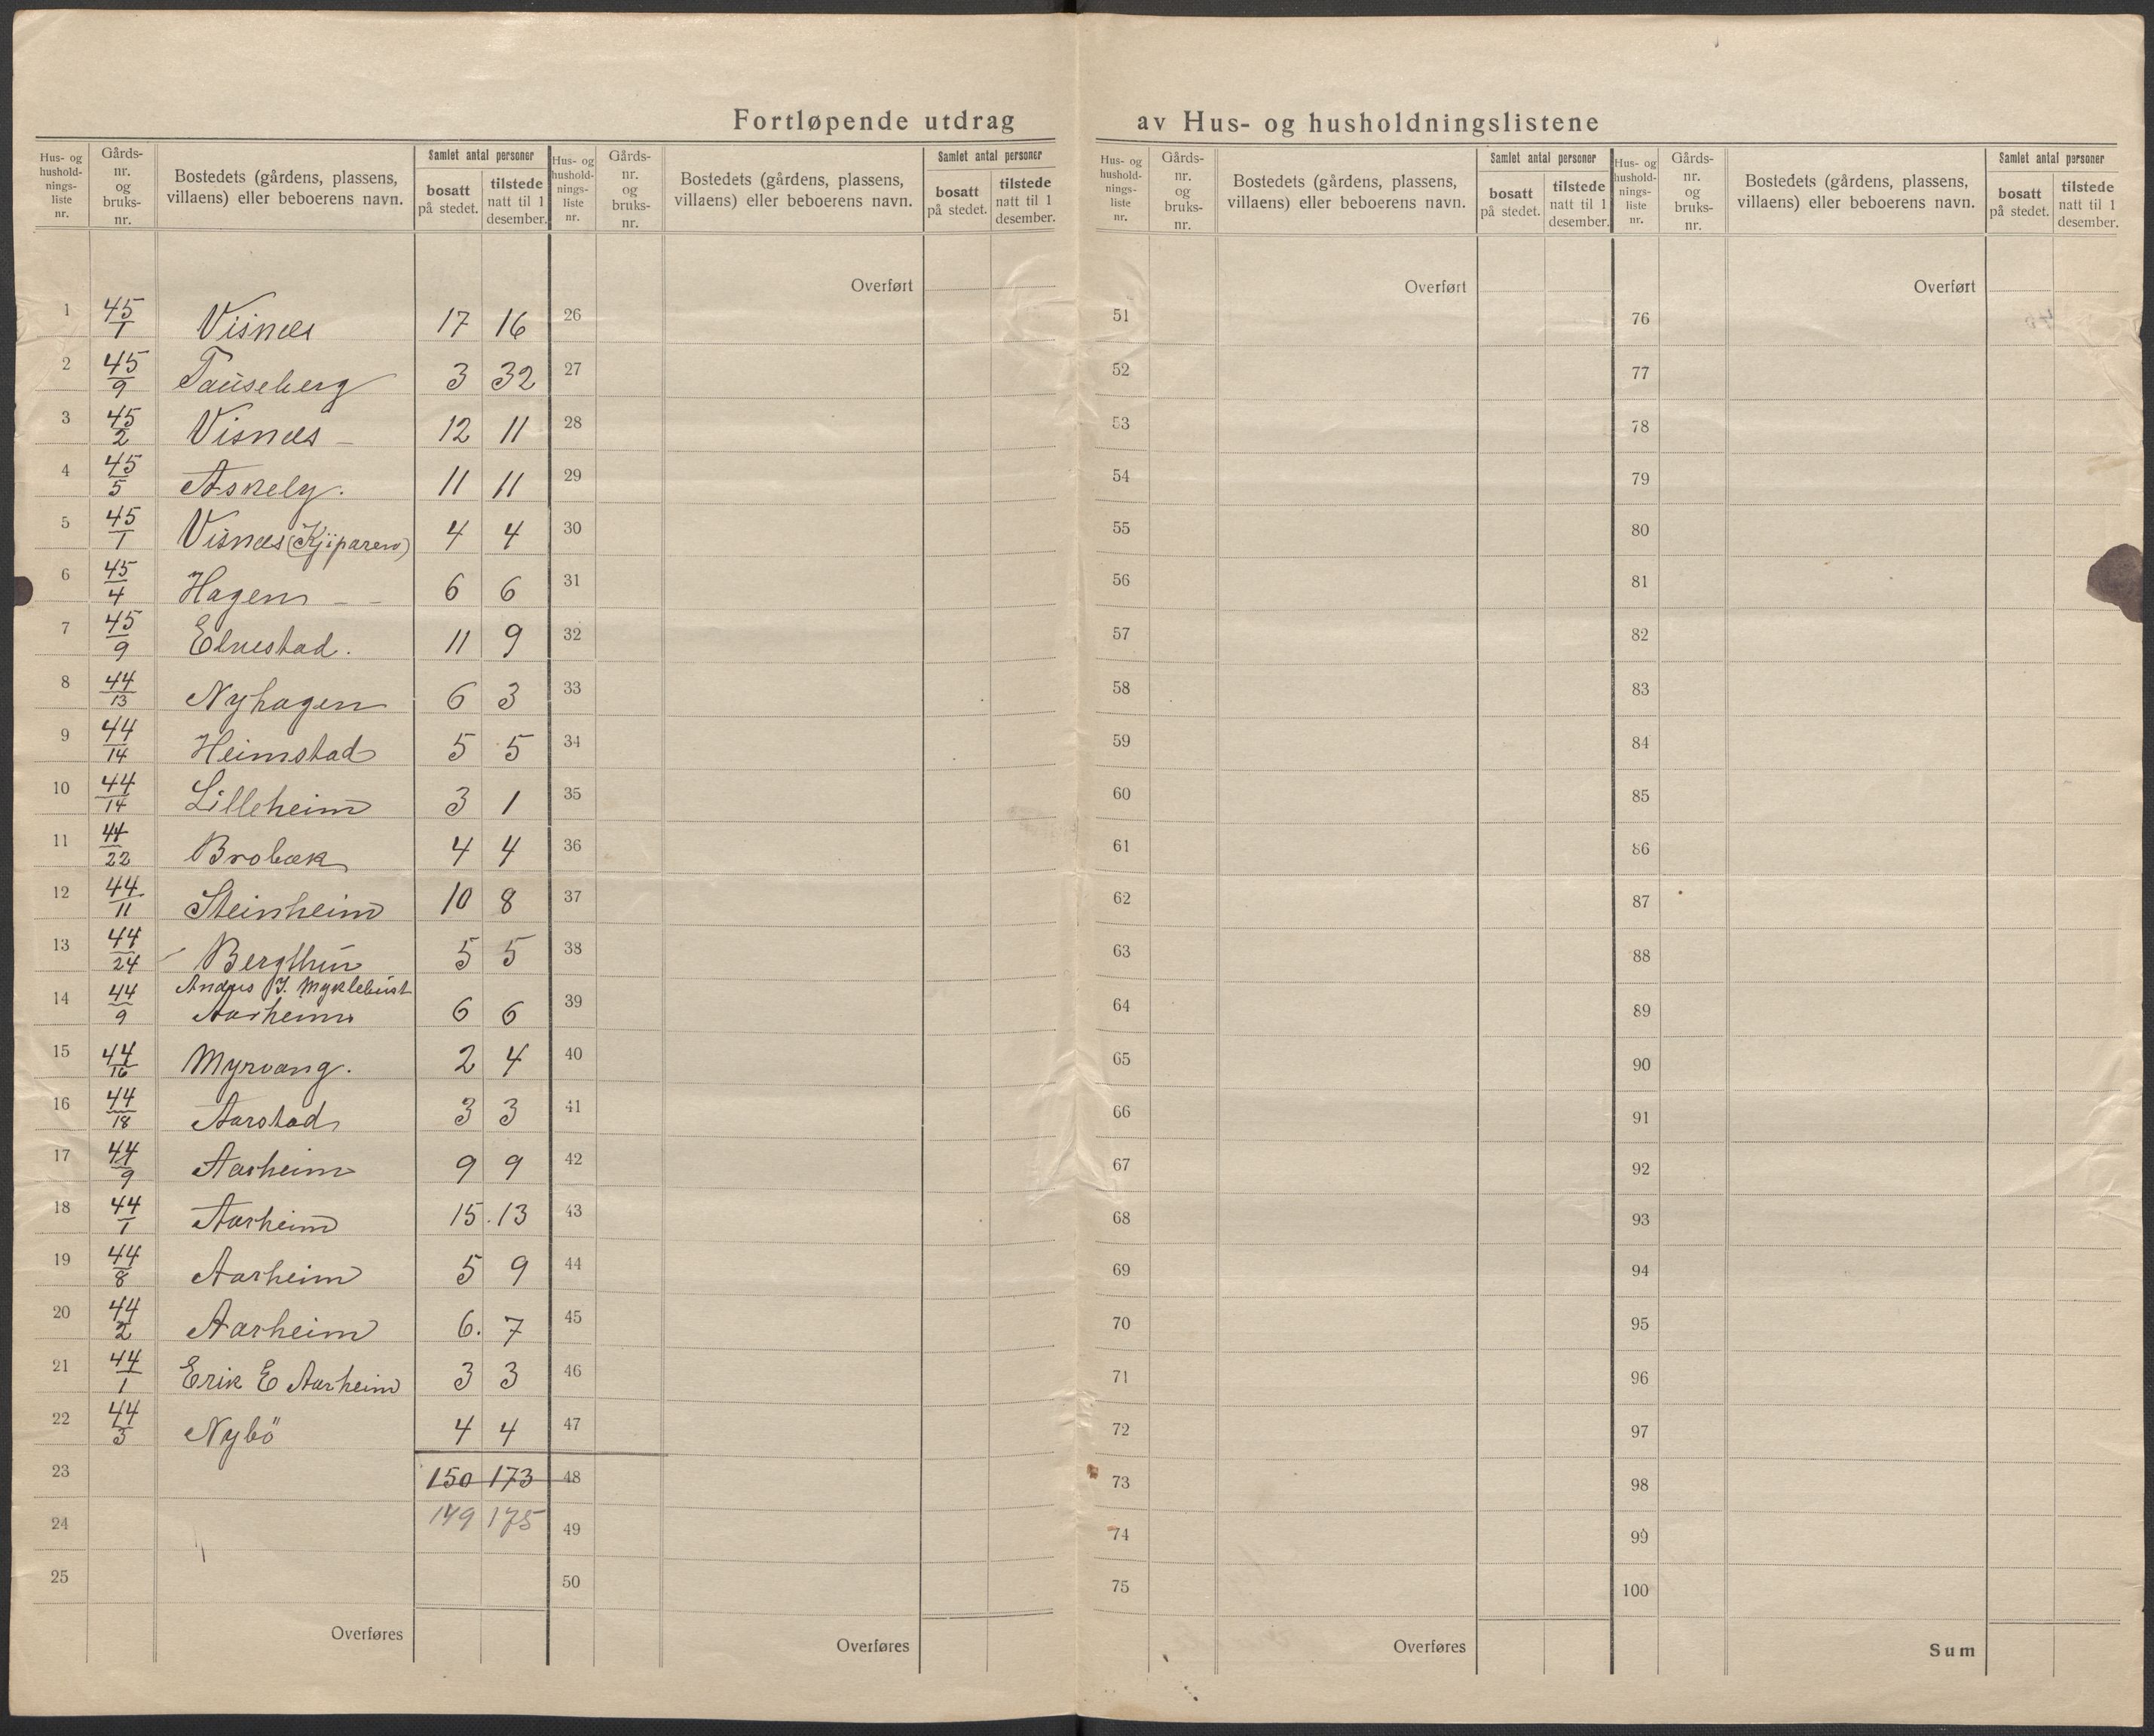 Fortløpende utdrag av Hus- og husholdningslistene
Hus- og hushold-nings-liste nr. Gårds-nr. og bruks-nr. Bostedets (gårdens, plassens, villaens) eller beboerens navn. Samlet antal personer bosatt på stedet. tilstede natt til 1 desember.
Hus- og hushold-nings-liste nr. Gårds-nr. og bruks-nr. Bostedets (gårdens, plassens, villaens) eller beboerens navn. Samlet antal personer bosatt på stedet. tilstede natt til 1 desember.
Hus- og hushold-nings-liste nr. Gårds-nr. og bruks-nr. Bostedets (gårdens, plassens, villaens) eller beboerens navn. Samlet antal personer bosatt på stedet. tilstede natt til 1 desember.
Hus- og hushold-nings-liste nr. Gårds-nr. og bruks-nr. Bostedets (gårdens, plassens, villaens) eller beboerens navn. Samlet antal personer bosatt på stedet. tilstede natt til 1 desember.
Overført Overført Overført
1 45/1 Visnæs 17 16 26 51 76
2 45/9 Tauseberg 3 32 27 52 77
3 45/2 Visnæs - 12 11 28 53 78
4 45/5 Askely. 11 11 29 54 79
5 45/1 Visnæs (Kjiparen) 4 4 30 55 80
6 45/4 Hagen - - 6 6 31 56 81
7 45/9 Elvestad. 11 9 32 57 82
8 44/13 Nyhagen 6 3 33 58 83
9 44/14 Heimstad 5 5 34 59 84
10 44/14 Lilleheim 3 1 35 60 85
11 44/22 Brobæk 4 4 36 61 86
12 44/11 Steinheim 10 8 37 62 87
13 44/24 Bergthun 5 5 38 63 88
Andrs J. Myklebust
14 44/9 Aarheim 6 6 39 64 89
15 44/16 Myrvang. 2 4 40 65 90
16 44/18 Aarstad 3 3 41 66 91
17 44/9 Aarheim 9 9 42 67 92
18 44/1 Aarheim 15. 13 43 68 93
19 44/8 Aarheim 5 9 44 69 94
20 44/2 Aarheim 6. 7 45 70 95
21 44/1 Erik E Aarheim 3 3 46 71 96
22 44/3 Nybö 4 4 47 72 97
23 150 173 48 73 98
24 149 175 49 74 99
25 50 75 100
Overføres Overføres Overføres Sum